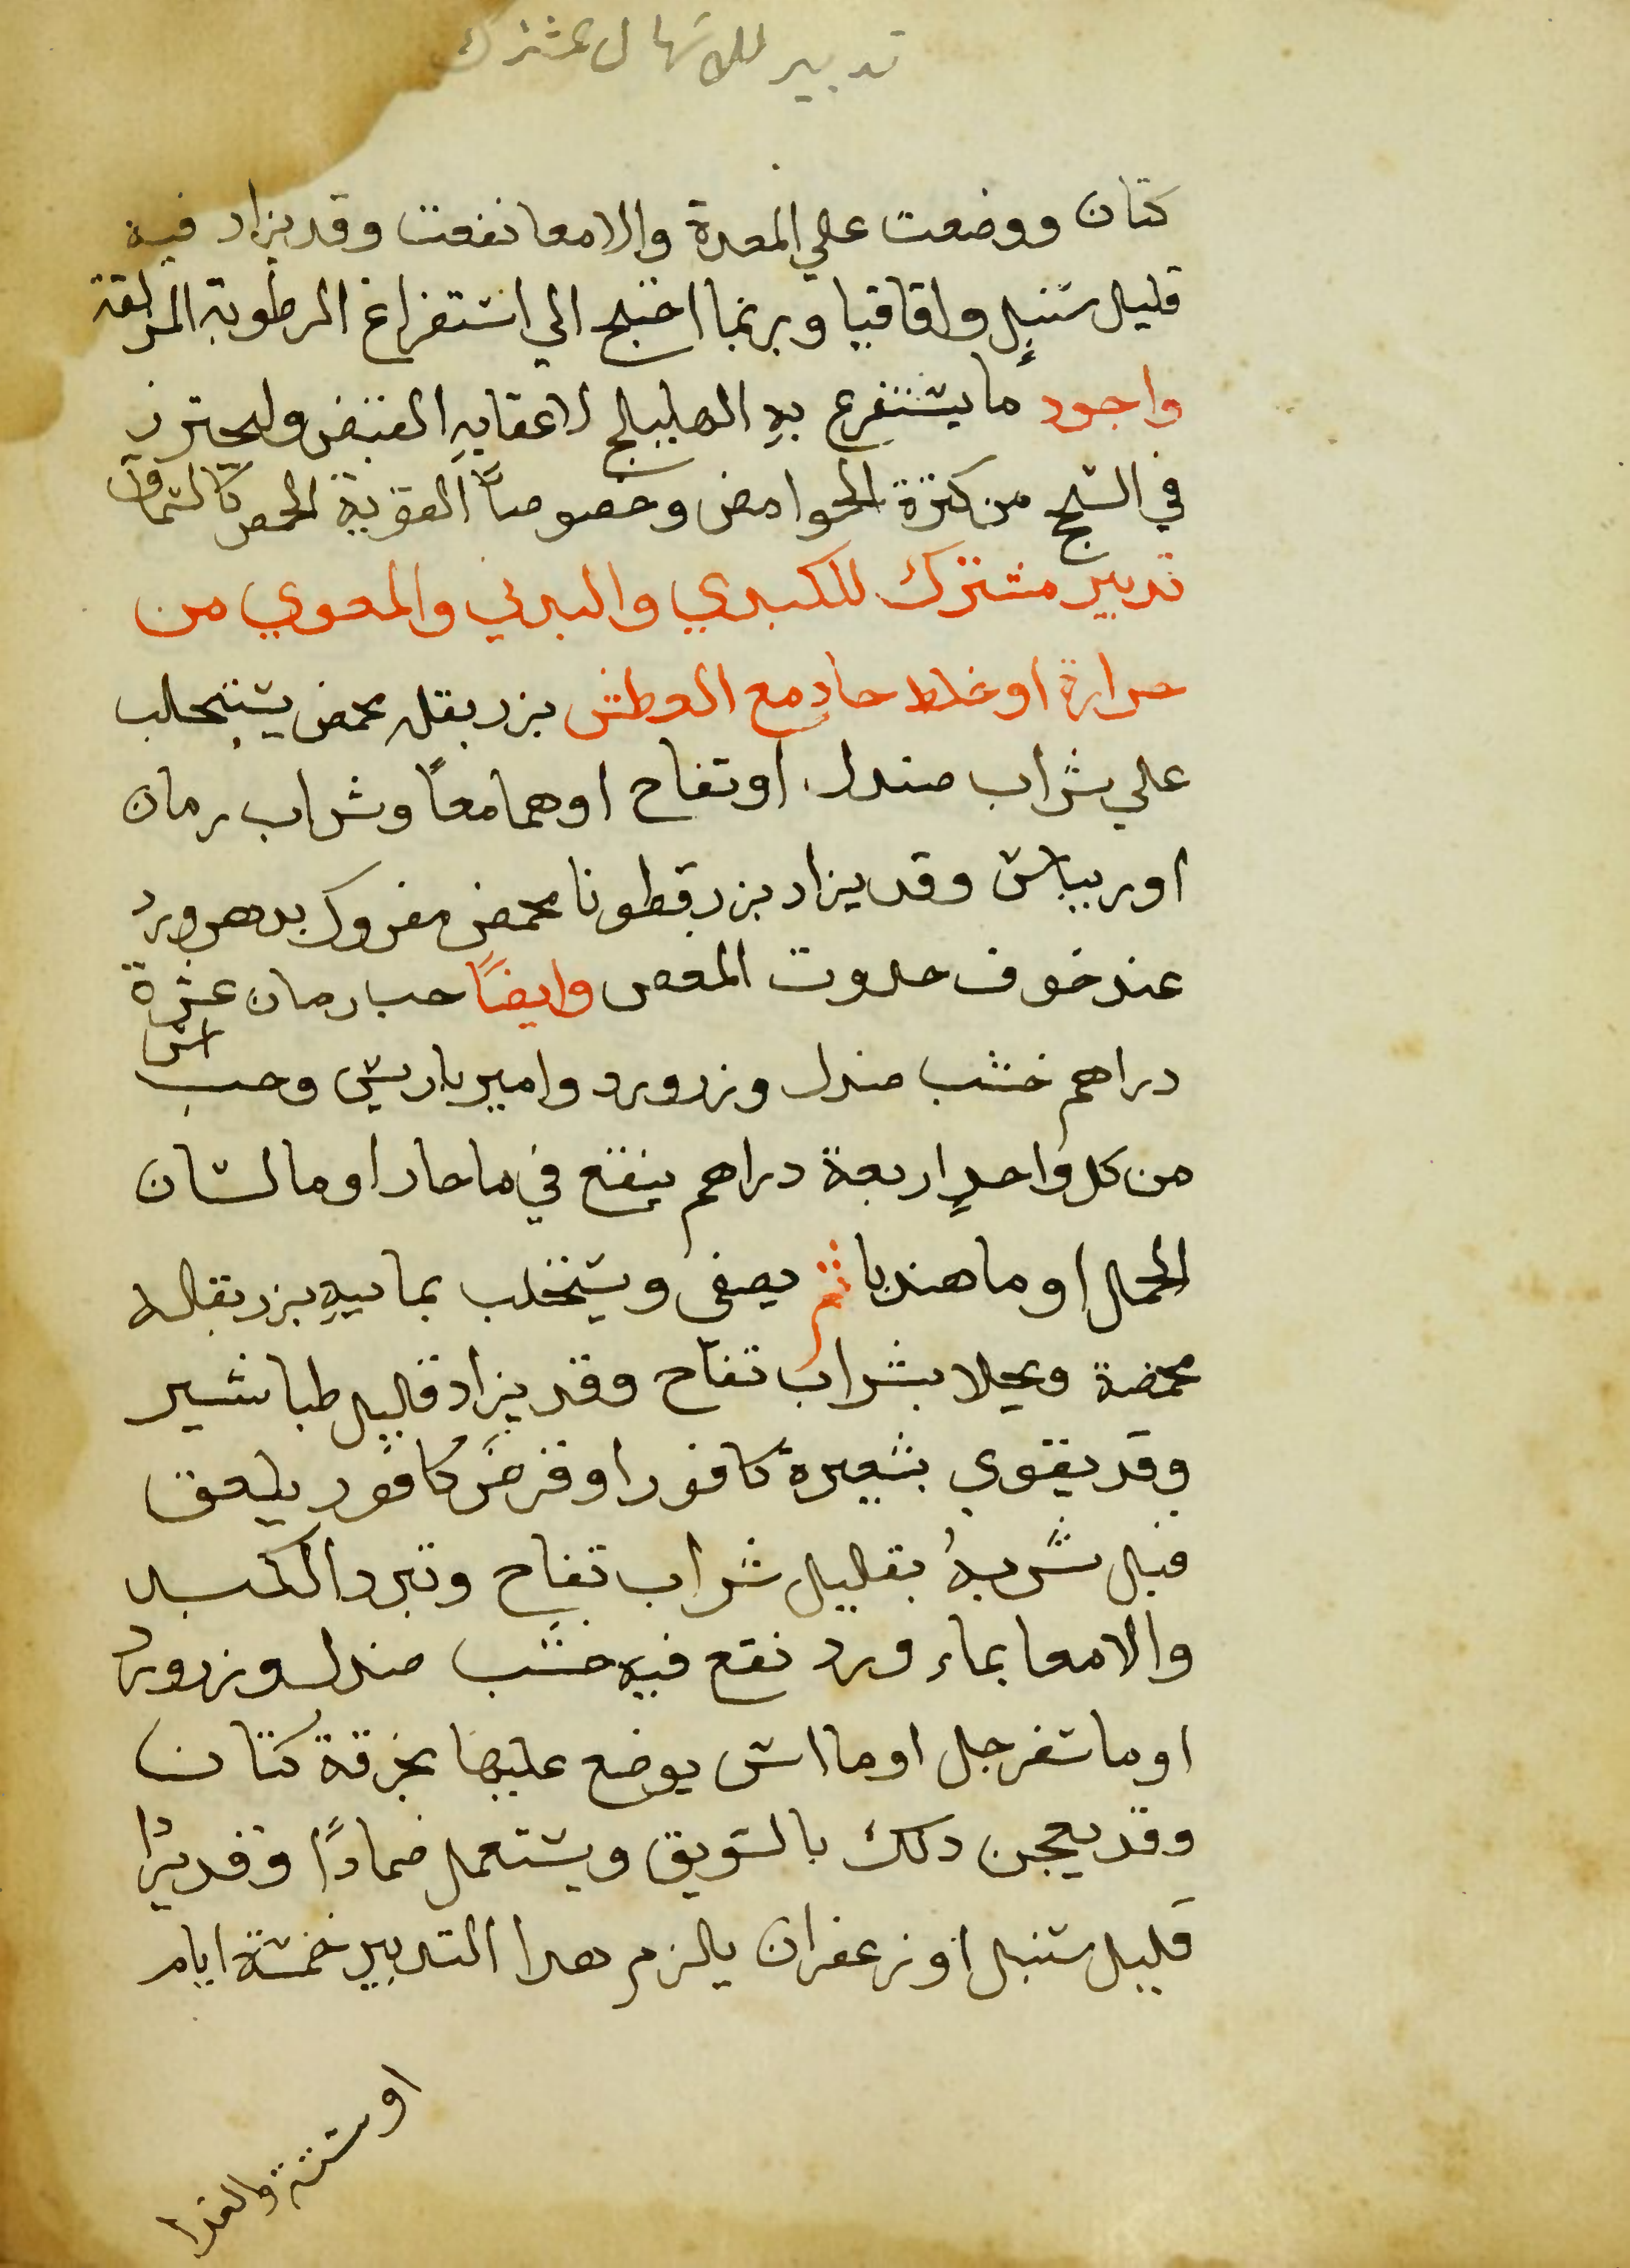 تدبير للاسهال مشترك
كتان ووضعت علي المعدة والامعا نفعت وقد يزاد فيه
قليل سنبل واقاقيا وربما احتيج الي استفراغ الرطوبة المزلقة
واجود ما يستفرغ به الهليلج لاعقابه القبض وليحترز
في السحج من كثرة الحوامض وخصوصاً القوية الحمض كالسماق
تدبير مشترك للكبدي والبدني والمعوي من
حرارة او خلط حاد مع العطش بزر بقله محمض يستحلب
علي شراب صندل او تفاح او هما معاً وشراب رمان
او ريباس وقد يزاد بزر قطونا محمض مفروك بدهن ورد
عند خوف حدوت المغص وايضاً حب رمان عشرة
دراهم خشب صندل وزر ورد وامير باريس وحب اس
من كل واحدٍ اربعة دراهم ينقع في ما حار او ما لسان
الحمل او ما هندبا ثم يصفى ويستحلب بمايه بزر بقله
محمضة ويحلا بشراب تفاح وقد يزاد قليل طباشير
وقد يقوي بشعيرة كافور او قرص كافور يلعق
قبل شربه بقليل شراب تفاح وتبرد الكبد
والامعا بماء ورد نقع فيه خشب صندل وزر ورد
او ما سفرجل او ما اس يوضع عليها بخرقة كتان
وقد يعجن دلك بالسويق ويستعمل ضماداً وقد يزا
قليل سنبل او زعفران يلزم هدا التدبير خمسة ايام
او ستة والغدا